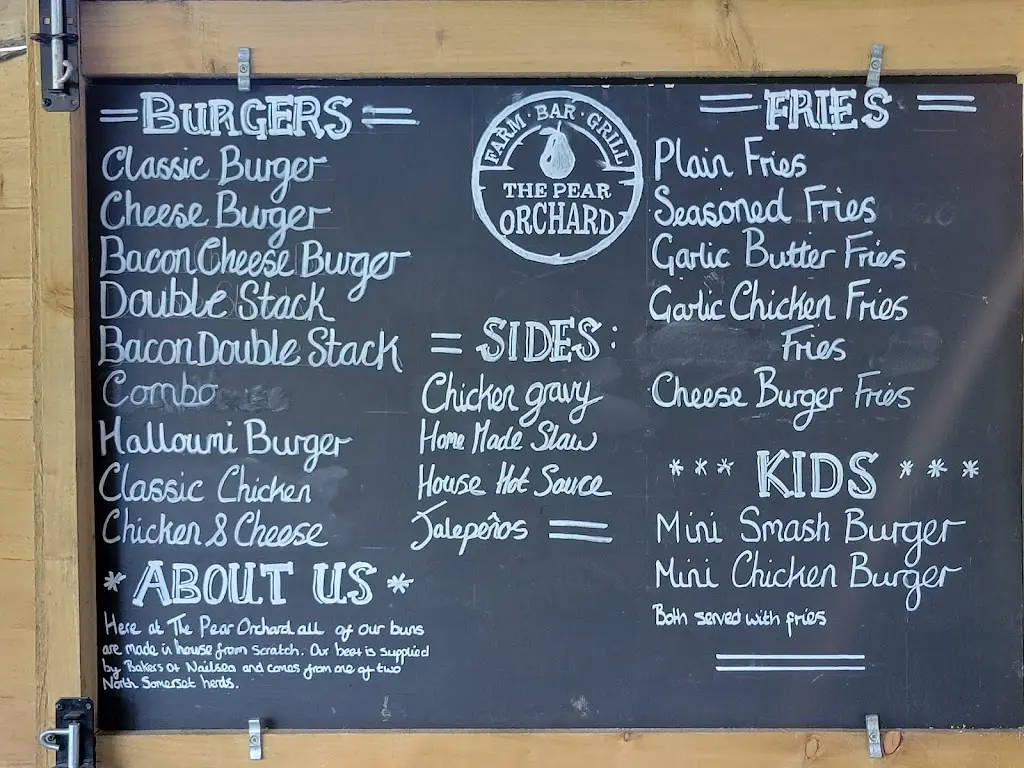 BURGERS
Classic Burger
Cheese Burger
Bacon Cheese Burger
Double Stack
Bacon Double Stack
Combo
Halloumi Burger
Classic Chicken
Chicken & Cheese
* ABOUT US *
Here at The Pear Orchard all of our buns
are made in house from scratch. Our beef is supplied
by Bakers of Nailsea and comes from one of two
North Somerset herds.
FARM · BAR · GRILL
THE PEAR
ORCHARD
= SIDES:
Chicken gravy
Home Made Slaw
House Hot Sauce
Jalepeños
FRIES
Plain Fries
Seasoned Fries
Garlic Butter Fries
Garlic Chicken Fries
Fries
Cheese Burger Fries
*** KIDS ***
Mini Smash Burger
Mini Chicken Burger
Both served with fries